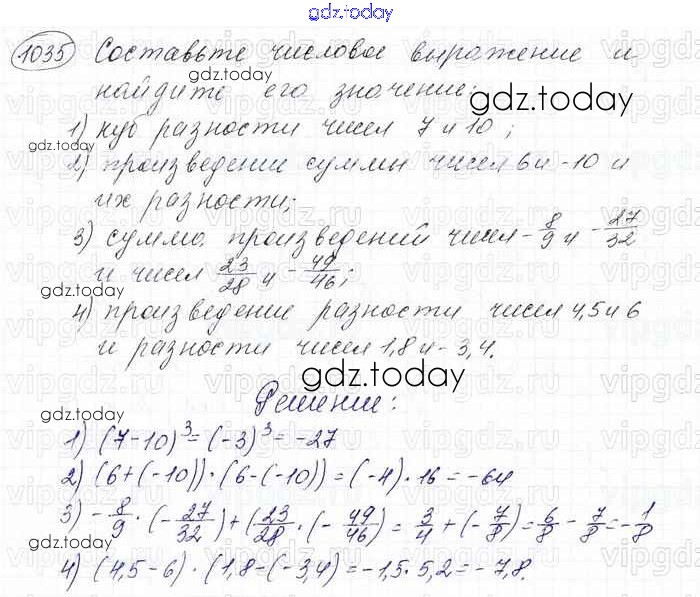 gdz.today
1035 Составьте числовое выражение и
gdz.today
найдите его значение:
gdz.today
1) куб разности чисел 7 и 10;
gdz.today
2) произведение суммы чисел 6 и -10 и
их разности;
3) сумма произведений чисел -8/9 и -27/32
и чисел 23/28 и -49/46;
gdz.today
4) произведение разности чисел 4,5 и 6
и разности чисел 1,8 и -3,4.
gdz.today
Решение:
gdz.today
1) (7-10)³=(-3)³=-27
2) (6+(-10))·(6-(-10))=(-4)·16=-64
3) -8/9·(-27/32)+(23/28·(-49/46)=3/4+(-7/8)=6/8-7/8=-1/8
gdz.today
4) (4,5-6)·(1,8-(-3,4)=-1,5·5,2=-7,8.
gdz.today